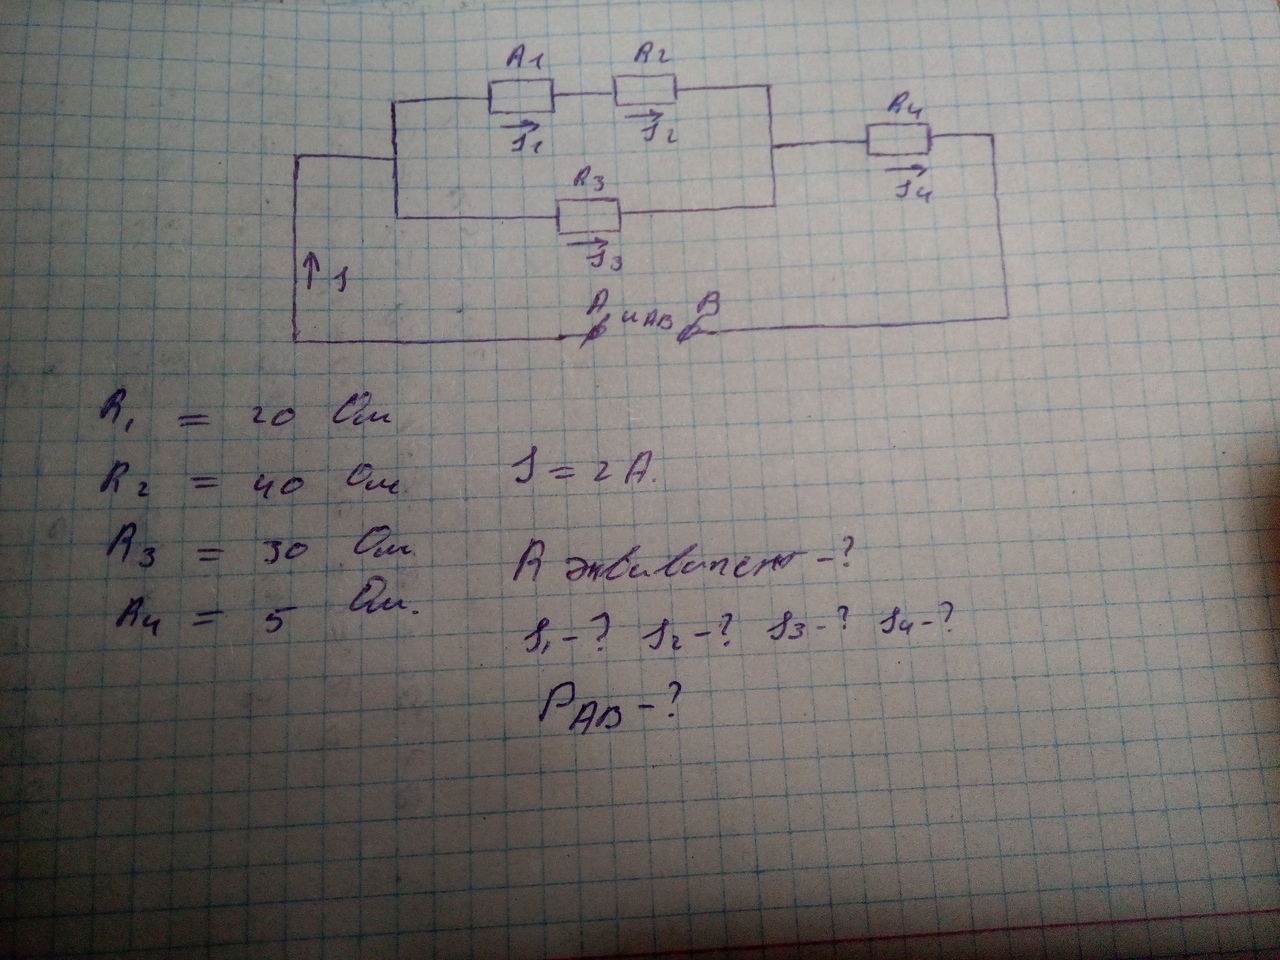 R1 R2
I1 I2
R4
I4
R3
I3
I
A U AB B
R1 = 20 Ом
R2 = 40 Ом.
R3 = 30 Ом
R4 = 5 Ом.
I = 2 А.
R эквивалент - ?
I1 - ? I2 - ? I3 - ? I4 - ?
PAB - ?